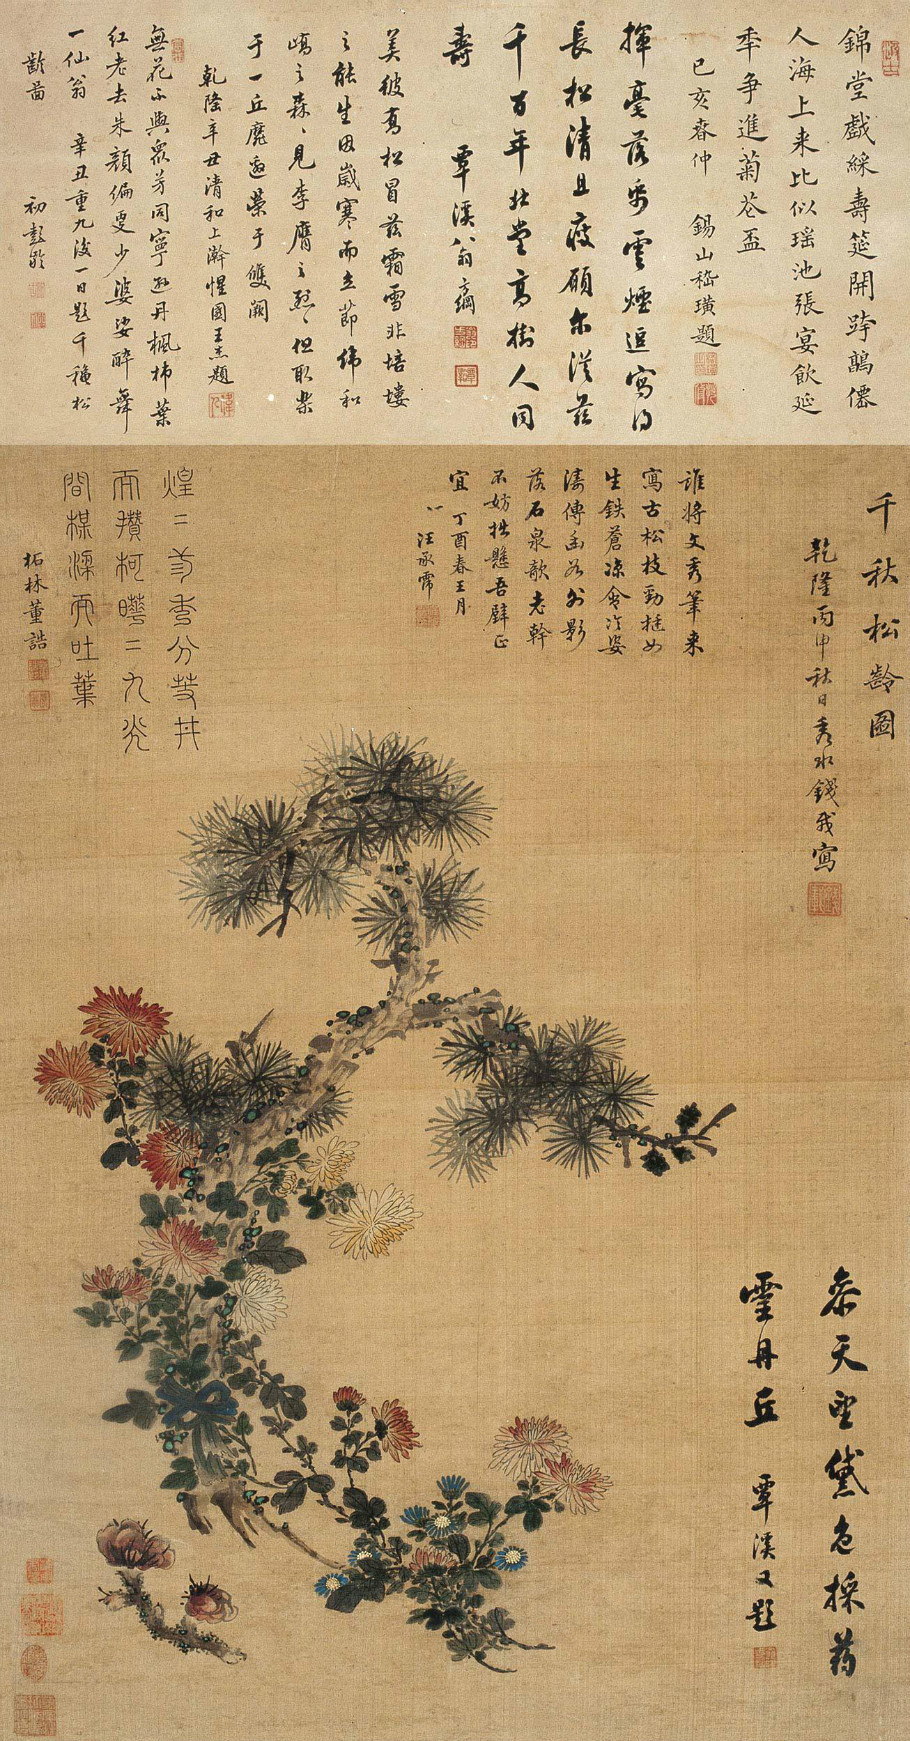 錦堂戲綵壽筵開跨鶴僊
人海上来比似瑶池張宴飲延
秊争進菊花盃
己亥春仲 錫山嵇璜題
揮毫落紙雲煙逗寫得
長松清且瘦願尔從兹
千百年北堂高樹人同
壽 覃溪翁方綱
美彼喬松冒兹霜雪非培塿
之能生因歲寒而立節緯和
嶠之森〻見李膺之烈〻但取樂
于一丘靡邀榮于雙闕
乾隆辛丑清和上澣惺園王杰題
無花不與眾芳同寧逊丹楓柿葉
紅老去朱顏偏更少婆娑醉舞
一仙翁 辛丑重九後一日題千秋松
齡圖 初彭齡
千秋松齡圖
乾隆丙申秋日秀水錢載寫
誰将文秀筆来
寫古松枝勁挺如
生鉄蒼凉含冷姿
濤傳幽谷外影
落石泉歌老幹
不妨拙懸吾壁正
宜 丁酉春王月
汪承霈
煌二芳秀分芰丼
而攢柯曄二九光
間楳深而吐葉
柘林董誥
叅天望黛色採药
雲丹丘 覃溪又題